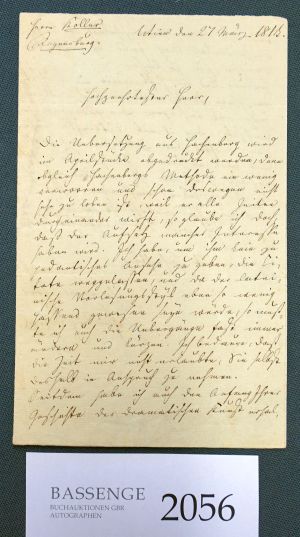 Herrn Koller
Regensburg.
den 27 März 1813.
Hochgeehrtester Herr,
Die Uebersetzung aus Hachenberg wird
im Aprilstücke abgedruckt werden, denn
obgleich Hachenbergs Methode ein wenig
verworren und schon deswegen nicht
sehr zu loben ist, weil er alle Zeiten
durcheinander wirft, so glaube ich doch,
daß der Aufsatz manches Interesse
haben wird. Ich habe, um ihm kein zu
pedantisches Ansehn zu geben, die Ci-
tate weggelassen, und da der latei-
nische Vorlesungsstyl eben so wenig
passend gewesen seyn würde, so muß-
te ich auch die Uebergänge fast immer
ändern und kürzen. Ich bedaure, daß
die Zeit mir nicht erlaubte, Sie selbst
deshalb in Anspruch zu nehmen.
Seitdem habe ich auch den Anfang Ihrer
Geschichte der dramatischen Kunst erhal-
BASSENGE
BUCHAUKTIONEN GBR
AUTOGRAPHEN
2056